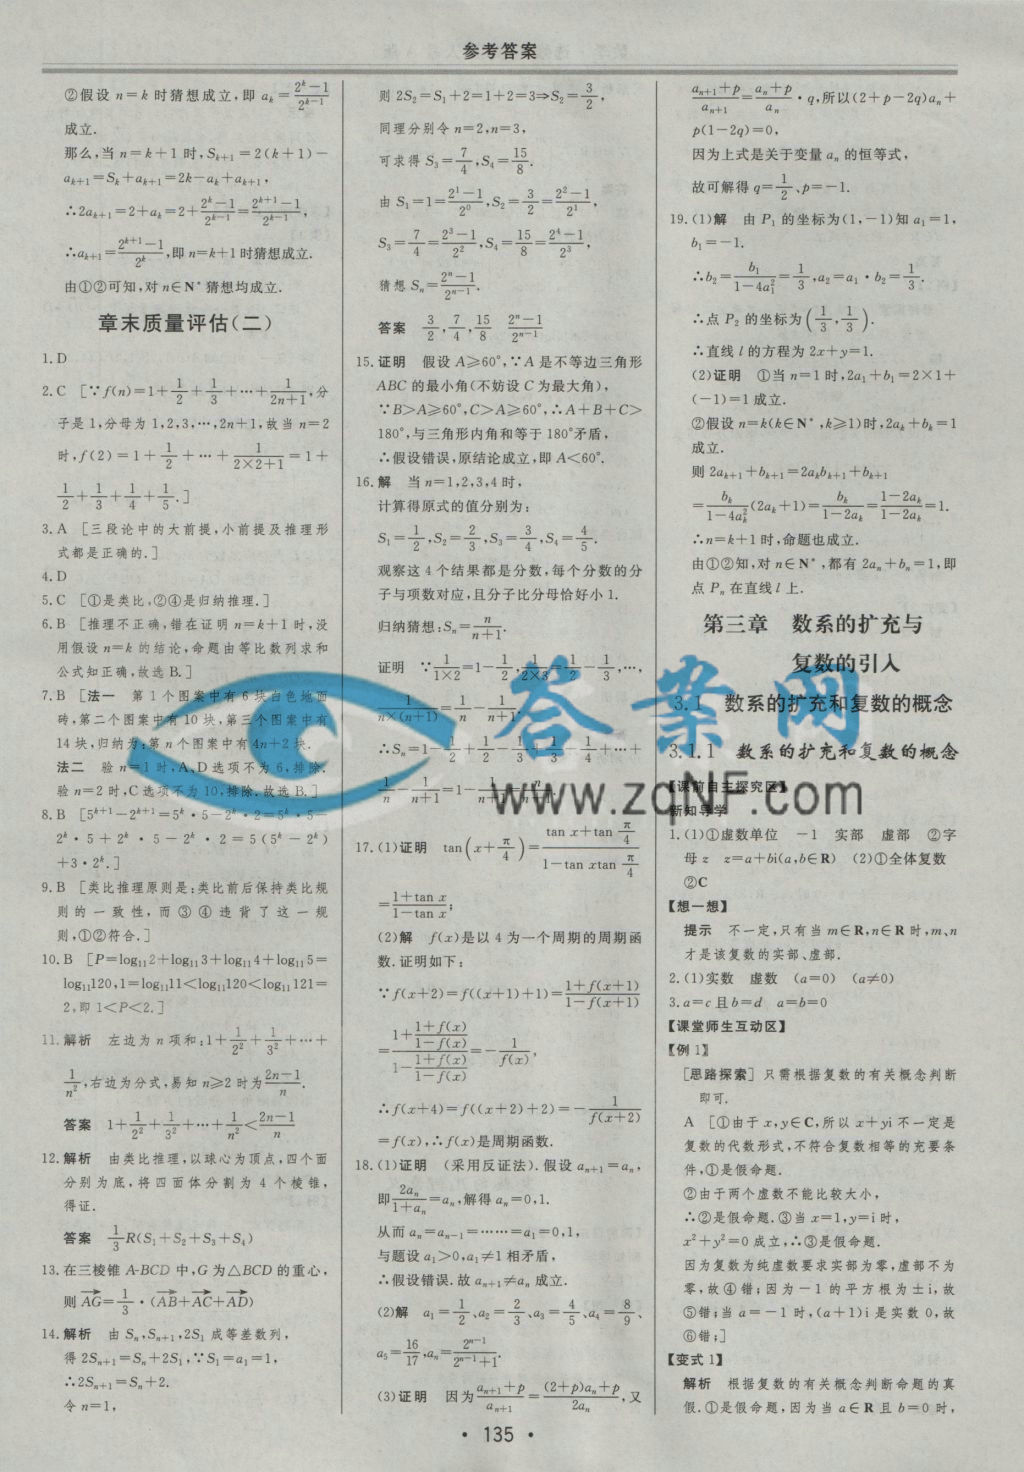 参考答案
②假设 n=k 时猜想成立,即 aₖ=(2ᵏ-1)/(2ᵏ⁻¹)
成立.
那么,当 n=k+1 时,Sₖ₊₁=2(k+1)-
aₖ₊₁=Sₖ+aₖ₊₁=2k-aₖ+aₖ₊₁,
∴2aₖ₊₁=2+aₖ=2+(2ᵏ-1)/(2ᵏ⁻¹)=(2ᵏ⁺¹-1)/(2ᵏ⁻¹),
∴aₖ₊₁=(2ᵏ⁺¹-1)/(2ᵏ),即 n=k+1 时猜想成立.
由①②可知,对 n∈N* 猜想均成立.
章末质量评估(二)
1. D
2. C [∵f(n)=1+1/2+1/3+…+1/(2n+1),分
子是 1,分母为 1,2,3,…,2n+1,故当 n=2
时,f(2)=1+1/2+…+1/(2×2+1)=1+
1/2+1/3+1/4+1/5.]
3. A [三段论中的大前提,小前提及推理形
式都是正确的.]
4. D
5. C [①是类比,②④是归纳推理.]
6. B [推理不正确,错在证明 n=k+1 时,没
用假设 n=k 的结论,命题由等比数列求和
公式知正确,故选 B.]
7. B [法一 第 1 个图案中有 6 块白色地面
砖,第二个图案中有 10 块,第三个图案中有
14 块,归纳为:第 n 个图案中有 4n+2 块.
法二 验 n=1 时,A、D 选项不为 6,排除.
验 n=2 时,C 选项不为 10,排除.故选 B.]
8. B [5ᵏ⁺¹-2ᵏ⁺¹=5ᵏ·5-2ᵏ·2=5ᵏ·5-
2ᵏ·5+2ᵏ·5-2ᵏ·2=5(5ᵏ-2ᵏ)
+3·2ᵏ.]
9. B [类比推理原则是:类比前后保持类比规
则的一致性,而③④违背了这一规
则,①②符合.]
10. B [P=log₁₁2+log₁₁3+log₁₁4+log₁₁5=
log₁₁120,1=log₁₁11<log₁₁120<log₁₁121=
2,即 1<P<2.]
11. 解析 左边为 n 项和:1+1/2²+1/3²+…+
1/n²,右边为分式,易知 n≥2 时为(2n-1)/n.
答案 1+1/2²+1/3²+…+1/n²<(2n-1)/n
12. 解析 由类比推理,以球心为顶点,四个面
分别为底,将四面体分割为 4 个棱锥,
得证.
答案 1/3R(S₁+S₂+S₃+S₄)
13. 在三棱锥 A-BCD 中,G 为△BCD 的重心,
则 AG→=1/3·(AB→+AC→+AD→)
14. 解析 由 Sₙ,Sₙ₊₁,2S₁ 成等差数列,
得 2Sₙ₊₁=Sₙ+2S₁,∵S₁=a₁=1,
∴2Sₙ₊₁=Sₙ+2.
令 n=1,
则 2S₂=S₁+2=1+2=3⇒S₂=3/2,
同理分别令 n=2,n=3,
可求得 S₃=7/4,S₄=15/8.
由 S₁=1=(2¹-1)/2⁰,S₂=3/2=(2²-1)/2¹,
S₃=7/4=(2³-1)/2²,S₄=15/8=(2⁴-1)/2³,
猜想 Sₙ=(2ⁿ-1)/(2ⁿ⁻¹).
答案 3/2,7/4,15/8 (2ⁿ-1)/(2ⁿ⁻¹)
15. 证明 假设 A≥60°,∵A 是不等边三角形
ABC 的最小角(不妨设 C 为最大角),
∵B>A≥60°,C>A≥60°,∴A+B+C>
180°,与三角形内角和等于 180°矛盾,
∴假设错误,原结论成立,即 A<60°.
16. 解 当 n=1,2,3,4 时,
计算得原式的值分别为:
S₁=1/2,S₂=2/3,S₃=3/4,S₄=4/5.
观察这 4 个结果都是分数,每个分数的分
子与项数对应,且分子比分母恰好小 1.
归纳猜想:Sₙ=n/(n+1).
证明 ∵1/(1×2)=1-1/2,1/(2×3)=1/2-1/3,…,
1/(n×(n+1))=1/n-1/(n+1).
∴Sₙ=1-1/2+1/2-1/3+1/3-1/4+…+
1/n-1/(n+1)=1-1/(n+1)=n/(n+1).
17. (1)证明 tan(x+π/4)=(tan x+tan π/4)/(1-tan xtan π/4)
=(1+tan x)/(1-tan x);
(2)解 f(x)是以 4 为一个周期的周期函
数.证明如下:
∵f(x+2)=f((x+1)+1)=(1+f(x+1))/(1-f(x+1))
=(1+(1+f(x))/(1-f(x)))/(1-(1+f(x))/(1-f(x)))=-1/f(x),
∴f(x+4)=f((x+2)+2)=-1/f(x+2)
=f(x),∴f(x)是周期函数.
18. (1)证明 (采用反证法).假设 aₙ₊₁=aₙ,
即2aₙ/(1+aₙ)=aₙ,解得 aₙ=0,1.
从而 aₙ=aₙ₋₁=……=a₁=0,1,
与题设 a₁>0,a₁≠1 相矛盾,
∴假设错误.故 aₙ₊₁≠aₙ 成立.
(2)解 a₁=1/2、a₂=2/3、a₃=4/5、a₄=8/9、
a₅=16/17,aₙ=2ⁿ⁻¹/(2ⁿ⁻¹+1).
(3)证明 因为(aₙ₊₁+p)/aₙ₊₁=((2+p)aₙ+p)/2aₙ,又
(aₙ₊₁+p)/aₙ₊₁=(aₙ+p)/aₙ·q,所以(2+p-2q)aₙ+
p(1-2q)=0,
因为上式是关于变量 aₙ 的恒等式,
故可解得 q=1/2、p=-1.
19. (1)解 由 P₁ 的坐标为(1,-1)知 a₁=1,
b₁=-1.
∴b₂=b₁/(1-4a₁²)=1/3,a₂=a₁·b₂=1/3.
∴点 P₂ 的坐标为(1/3,1/3).
∴直线 l 的方程为 2x+y=1.
(2)证明 ①当 n=1 时,2a₁+b₁=2×1+
(-1)=1 成立.
②假设 n=k(k∈N*,k≥1)时,2aₖ+bₖ=1
成立.
则 2aₖ₊₁+bₖ₊₁=2aₖbₖ₊₁+bₖ₊₁
=bₖ/(1-4aₖ²)(2aₖ+1)=bₖ/(1-2aₖ)=(1-2aₖ)/(1-2aₖ)=1.
∴n=k+1 时,命题也成立.
由①②知,对 n∈N*,都有 2aₙ+bₙ=1,即
点 Pₙ 在直线 l 上.
第三章 数系的扩充与
复数的引入
3.1 数系的扩充和复数的概念
3.1.1 数系的扩充和复数的概念
【课前自主探究区】
新知导学
1. (1)①虚数单位 -1 实部 虚部 ②字
母 z z=a+bi(a,b∈R) (2)①全体复数
②C
【想一想】
提示 不一定,只有当 m∈R,n∈R 时,m、n
才是该复数的实部、虚部.
2. (1)实数 虚数 (a=0) (a≠0)
3. a=c 且 b=d a=b=0
【课堂师生互动区】
【例 1】
[思路探索] 只需根据复数的有关概念判断
即可.
A [①由于 x,y∈C,所以 x+yi 不一定是
复数的代数形式,不符合复数相等的充要条
件,①是假命题.
②由于两个虚数不能比较大小,
∴②是假命题.③当 x=1,y=i 时,
x²+y²=0 成立,∴③是假命题.
因为复数为纯虚数要求实部为零,虚部不为
零,故④错;因为-1 的平方根为±i,故
⑤错;当 a=-1 时,(a+1)i 是实数 0,故
⑥错;]
【变式 1】
解析 根据复数的有关概念判断命题的真
假.①是假命题,因为当 a∈R 且 b=0 时,
答案网
www.zqNF.com
• 135 •